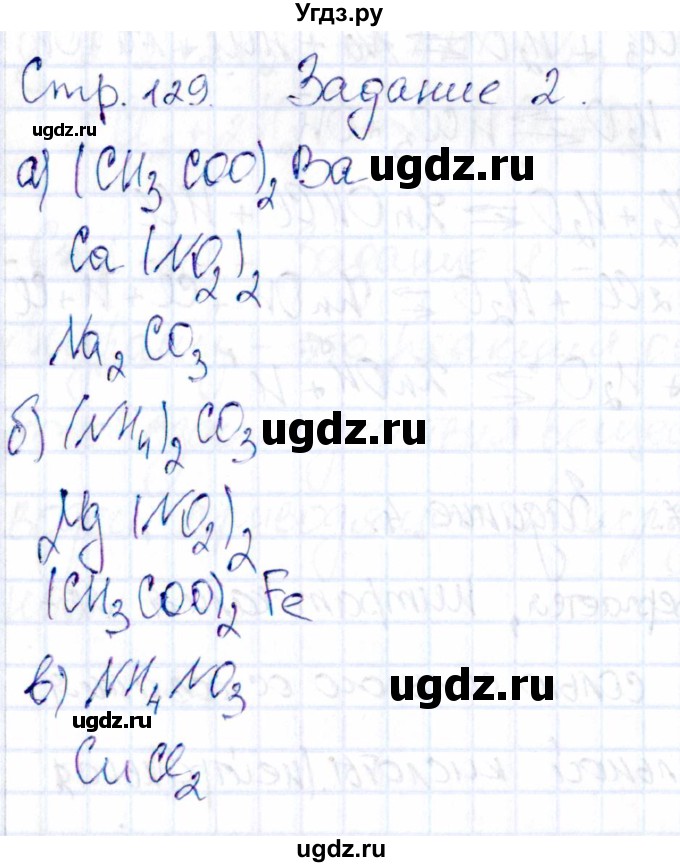 Угдз.ру
Стр. 129. Задание 2.
ugdz.ru
а) (CH3COO)2Ba ugdz.ru
Ca(NO2)2
Na2CO3
б) (NH4)2CO3 ugdz.ru
Mg(NO2)2
(CH3COO)2Fe
в) NH4NO3 ugdz.ru
ugdz.ru
CuCl2
ugdz.ru